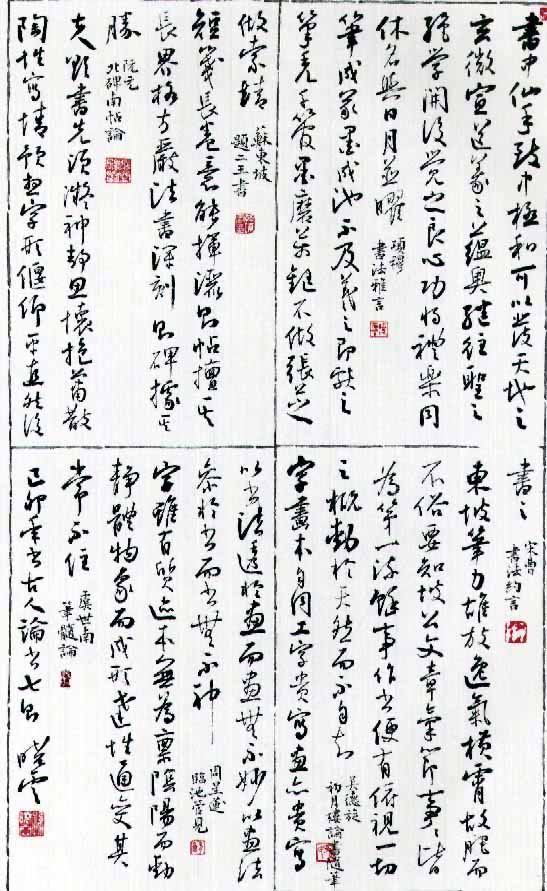 書中仙手致中極和可以發天地之
玄微宣道義之蘊奧繼往聖之
絕學開後覺之良心功將禮樂同
休名與日月並曜
項穆
書法雅言
筆成冢墨成池不及羲之即獻之
筆禿千管墨磨萬鋌不做張芝
做索靖
蘇東坡
題二王書
短箋長卷意態揮灑則帖擅其
長界格方嚴法書深刻則碑據其
勝
阮元
北碑南帖論
夫欲書先須凝神靜思懷抱蕭散
陶性寫情預想字形偃仰平直然後
書之
宋曹
書法約言
東坡筆力雄放逸氣橫霄故肥而
不俗要知坡公文章氣節事事皆
為第一流餘事作書便有俯視一切
之概動於天然而不自知
吳德旋
初月樓論書隨筆
字畫本自同工字貴寫畫亦貴寫
以書法透於畫而畫無不妙以畫法
參於書而書無不神
周星蓮
臨池管見
字雖有質迹本無為稟陰陽而動
靜體物象而成形達性通變其
常不住
虞世南
筆髓論
己卯年書古人論書七則 曉雲